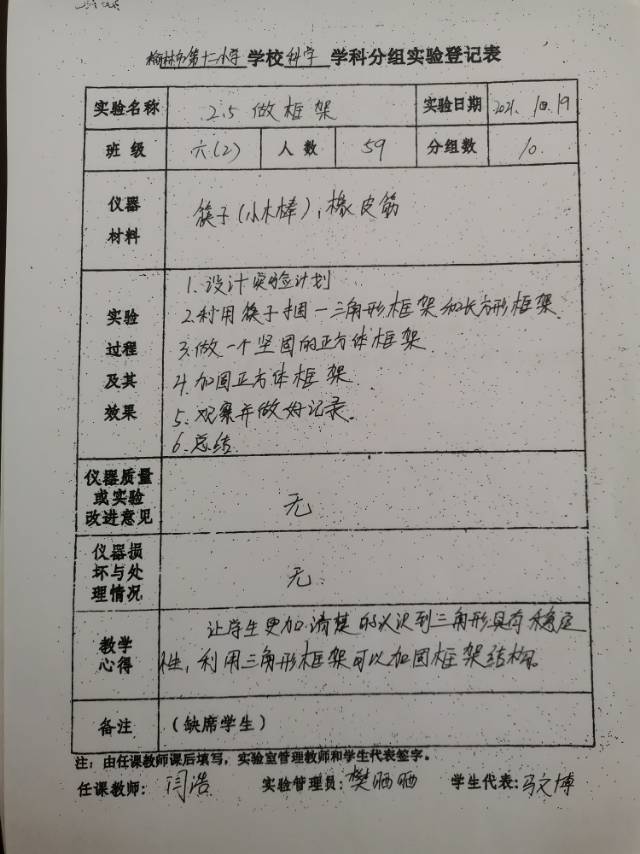 榆林市第十二小学 学校 科学 学科分组实验登记表
实验名称 2.5 做框架 实验日期 2021. 10.19
班 级 六(2) 人 数 59 分组数 10
仪器
材料
筷子(小木棒), 橡皮筋
实验
过程
及其
效果
1. 设计实验计划
2. 利用筷子捆一三角形框架和长方形框架.
3. 做一个坚固的正方体框架
4. 加固正方体框架
5. 观察并做好记录.
6. 总结
仪器质量
或实验
改进意见
无
仪器损
坏与处
理情况
无
教学
心得
让学生更加清楚的认识到三角形具有稳定
性, 利用三角形框架可以加固框架结构。
备注 (缺席学生)
注: 由任课教师课后填写, 实验室管理教师和学生代表签字。
任课教师: 闫浩 实验管理员: 樊晒晒 学生代表: 马文博